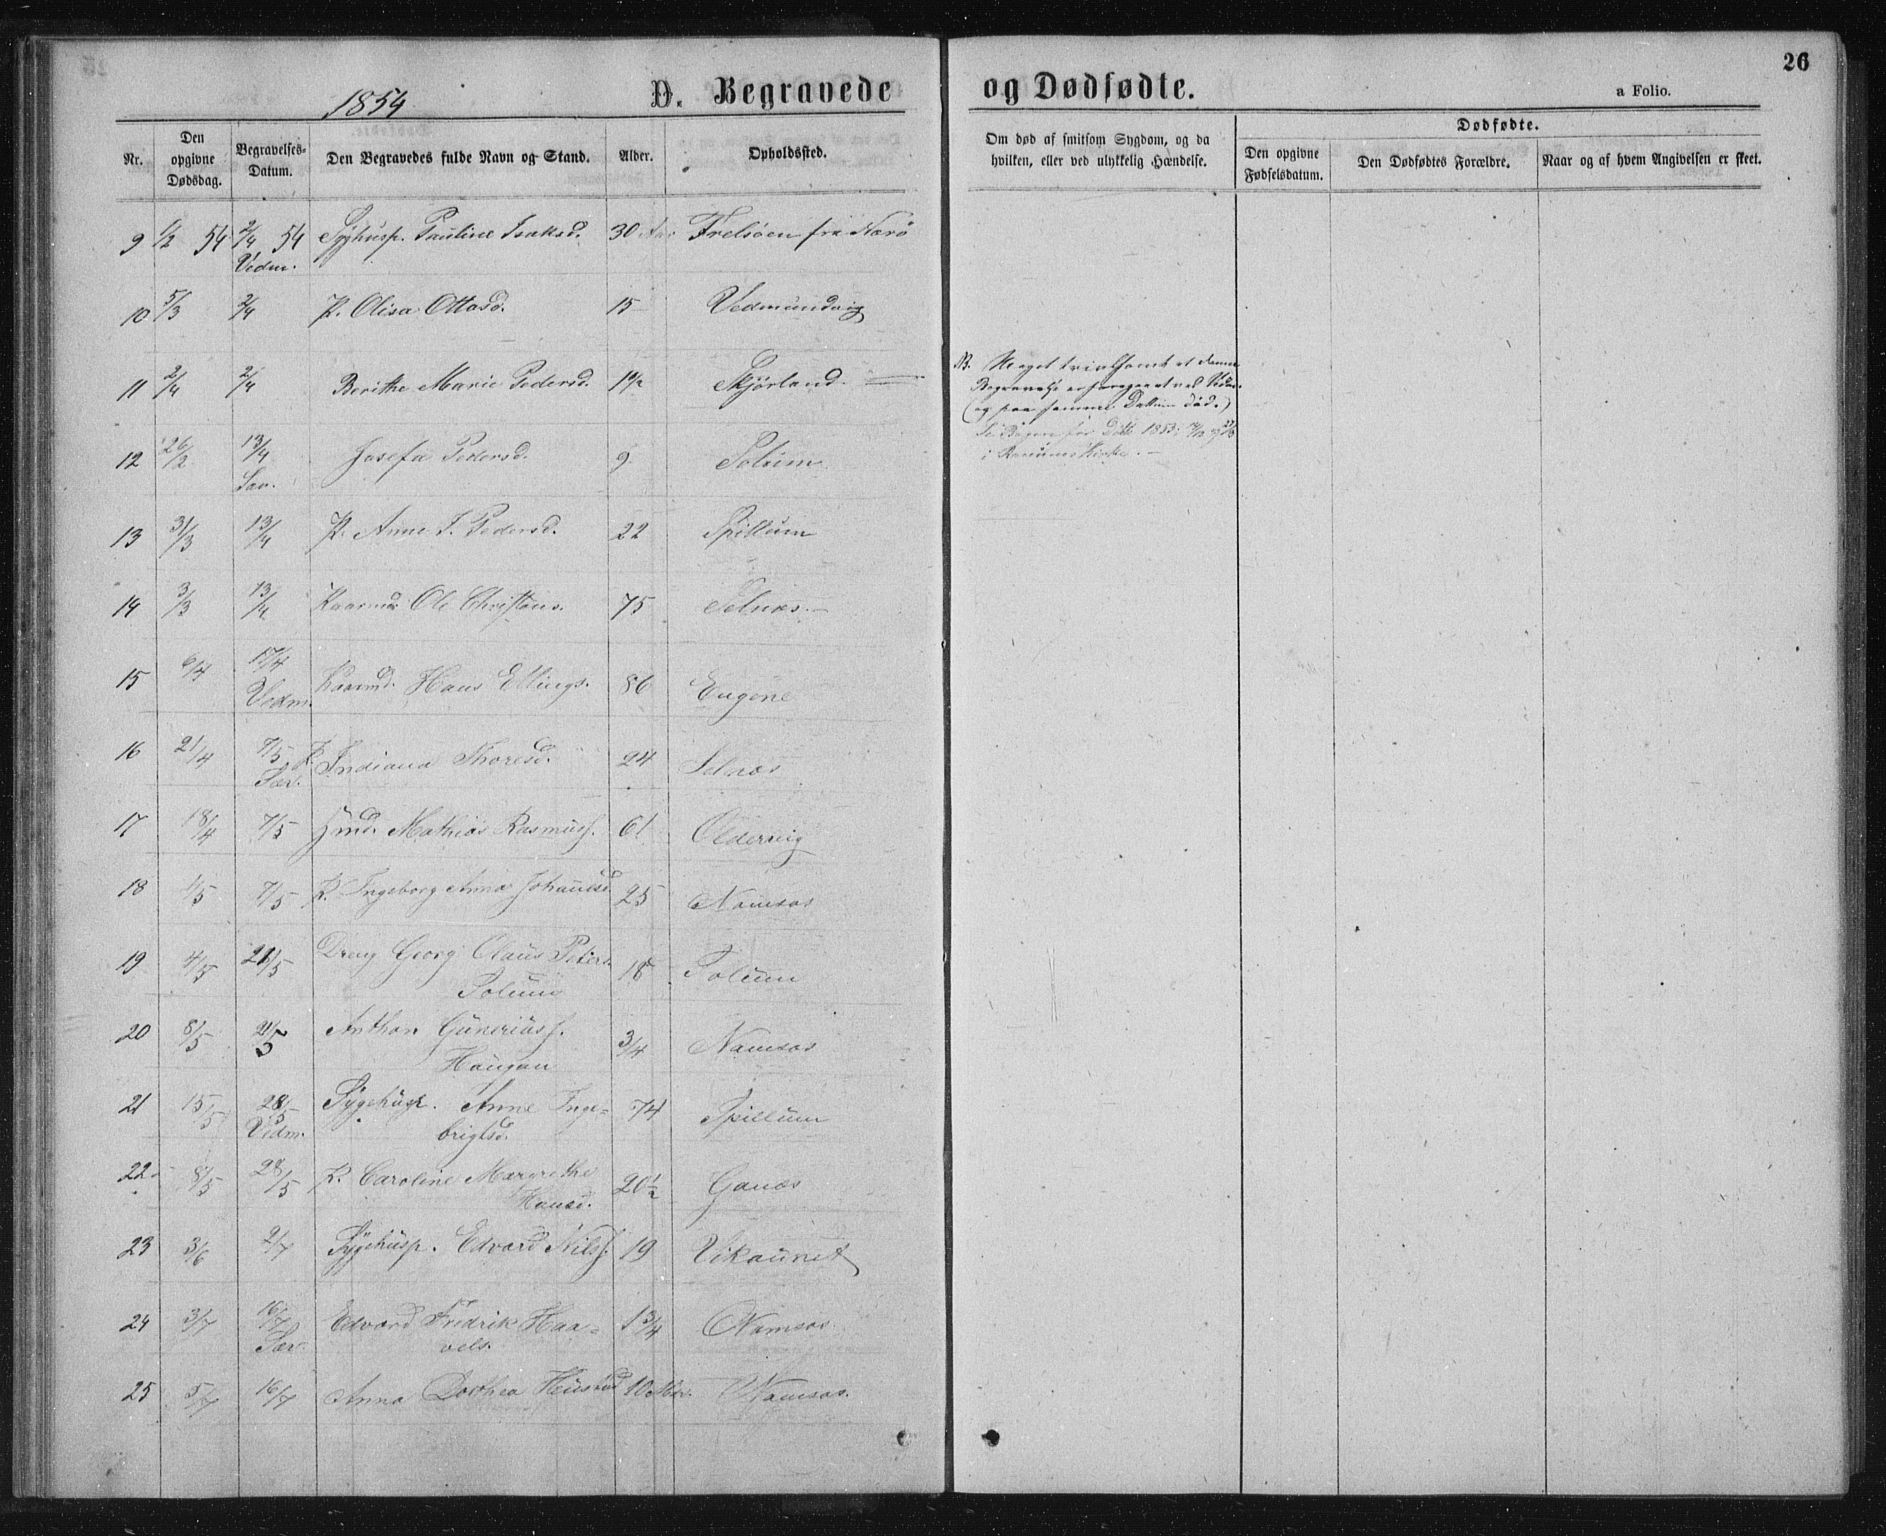 26
1854
D. Begravede og Dødfødte.
a Folio.
Nr. Den opgivne Dødsdag. Begravelses-Datum. Den Begravedes fulde Navn og Stand. Alder. Opholdssted. Om død af smitsom Sygdom, og da hvilken, eller ved ulykkelig Hændelse. Dødfødte. Den opgivne Fødselsdatum. Den Dødfødtes Forældre. Naar og af hvem Angivelsen er skeet.
9 1/2 54 2/4 54 Syghusp. Pauline Isaksd. 30 Aar Frelsøen fra Nærø
Vedm.
10 5/3 2/4 P. Olisa Ottosd. 15 Vedmundvig
11 2/4 2/4 Berithe Marie Pedersd. 1 1/2 Skjørland.
NB. Meget tvivlsomt at denne
Begravelse er foregaaet ved Vedm.
(og paa samme Datum død.)
12 26/2 13/4 Josefa Pedersd. 9 Solum
Sav.
13 31/3 13/4 P. Anne I. Pedersd. 22 Spillum
14 3/3 13/4 Kaarmd. Ole Christens. 75 Selnæs.
15 6/4 17/4 Kaarmd. Hans Ellings. 86
Vedm.
16 21/4 7/5 P. Indiana Thoresd. 24 Selnæs
Sæv.
17 18/4 7/5 Hmd. Mathias Rasmuss. 61 Oldervig
18 1/5 7/5 P. Ingeborg Anna Johansd. 25 Namsos
19 4/5 21/5 Dreng Georg Olaus Peters. 18 Solum
Solum
20 8/5 21/5 Anthon Guneriuss. 3/4 Namsos
Haugan
21 15/5 28/5 Sygehusp. Anne Inge- 74 Spillum
Vedm. brigtsd.
22 8/5 28/5 P. Caroline Margrethe 20 1/2 Ganæs
Hansd.
23 3/6 2/7 Sygehusp. Edvard Nilss. 19 Vikaunet
24 3/7 16/7 Edvard Fredrik Haa- 1 3/4 Namsos
Sæv. vels.
25 5/7 16/7 Anna Dorthea 10 Namsos.